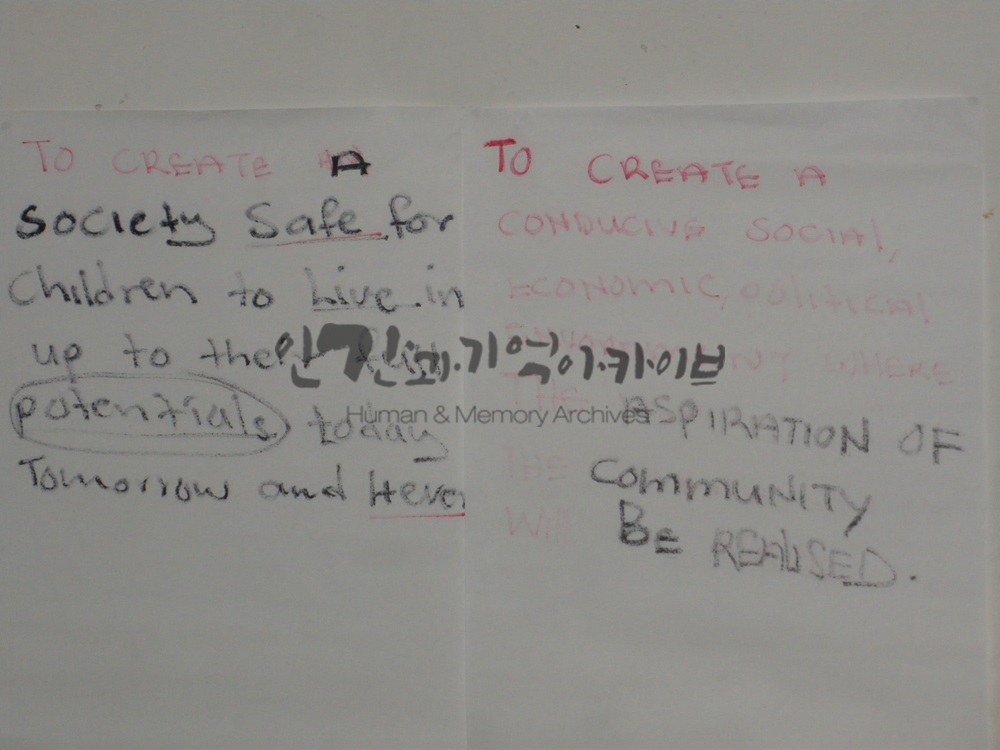 TO CREATE A
Society Safe for
Children to Live in
up to their full
potentials today
Tomorrow and
TO CREATE A
CONDUCIVE SOCIAL,
ECONOMIC, political
ENVIRONMENT WHERE
THE ASPIRATION OF
THE COMMUNITY
Will BE REALISED.
인권과.기억아.카이브
Human & Memory Archives